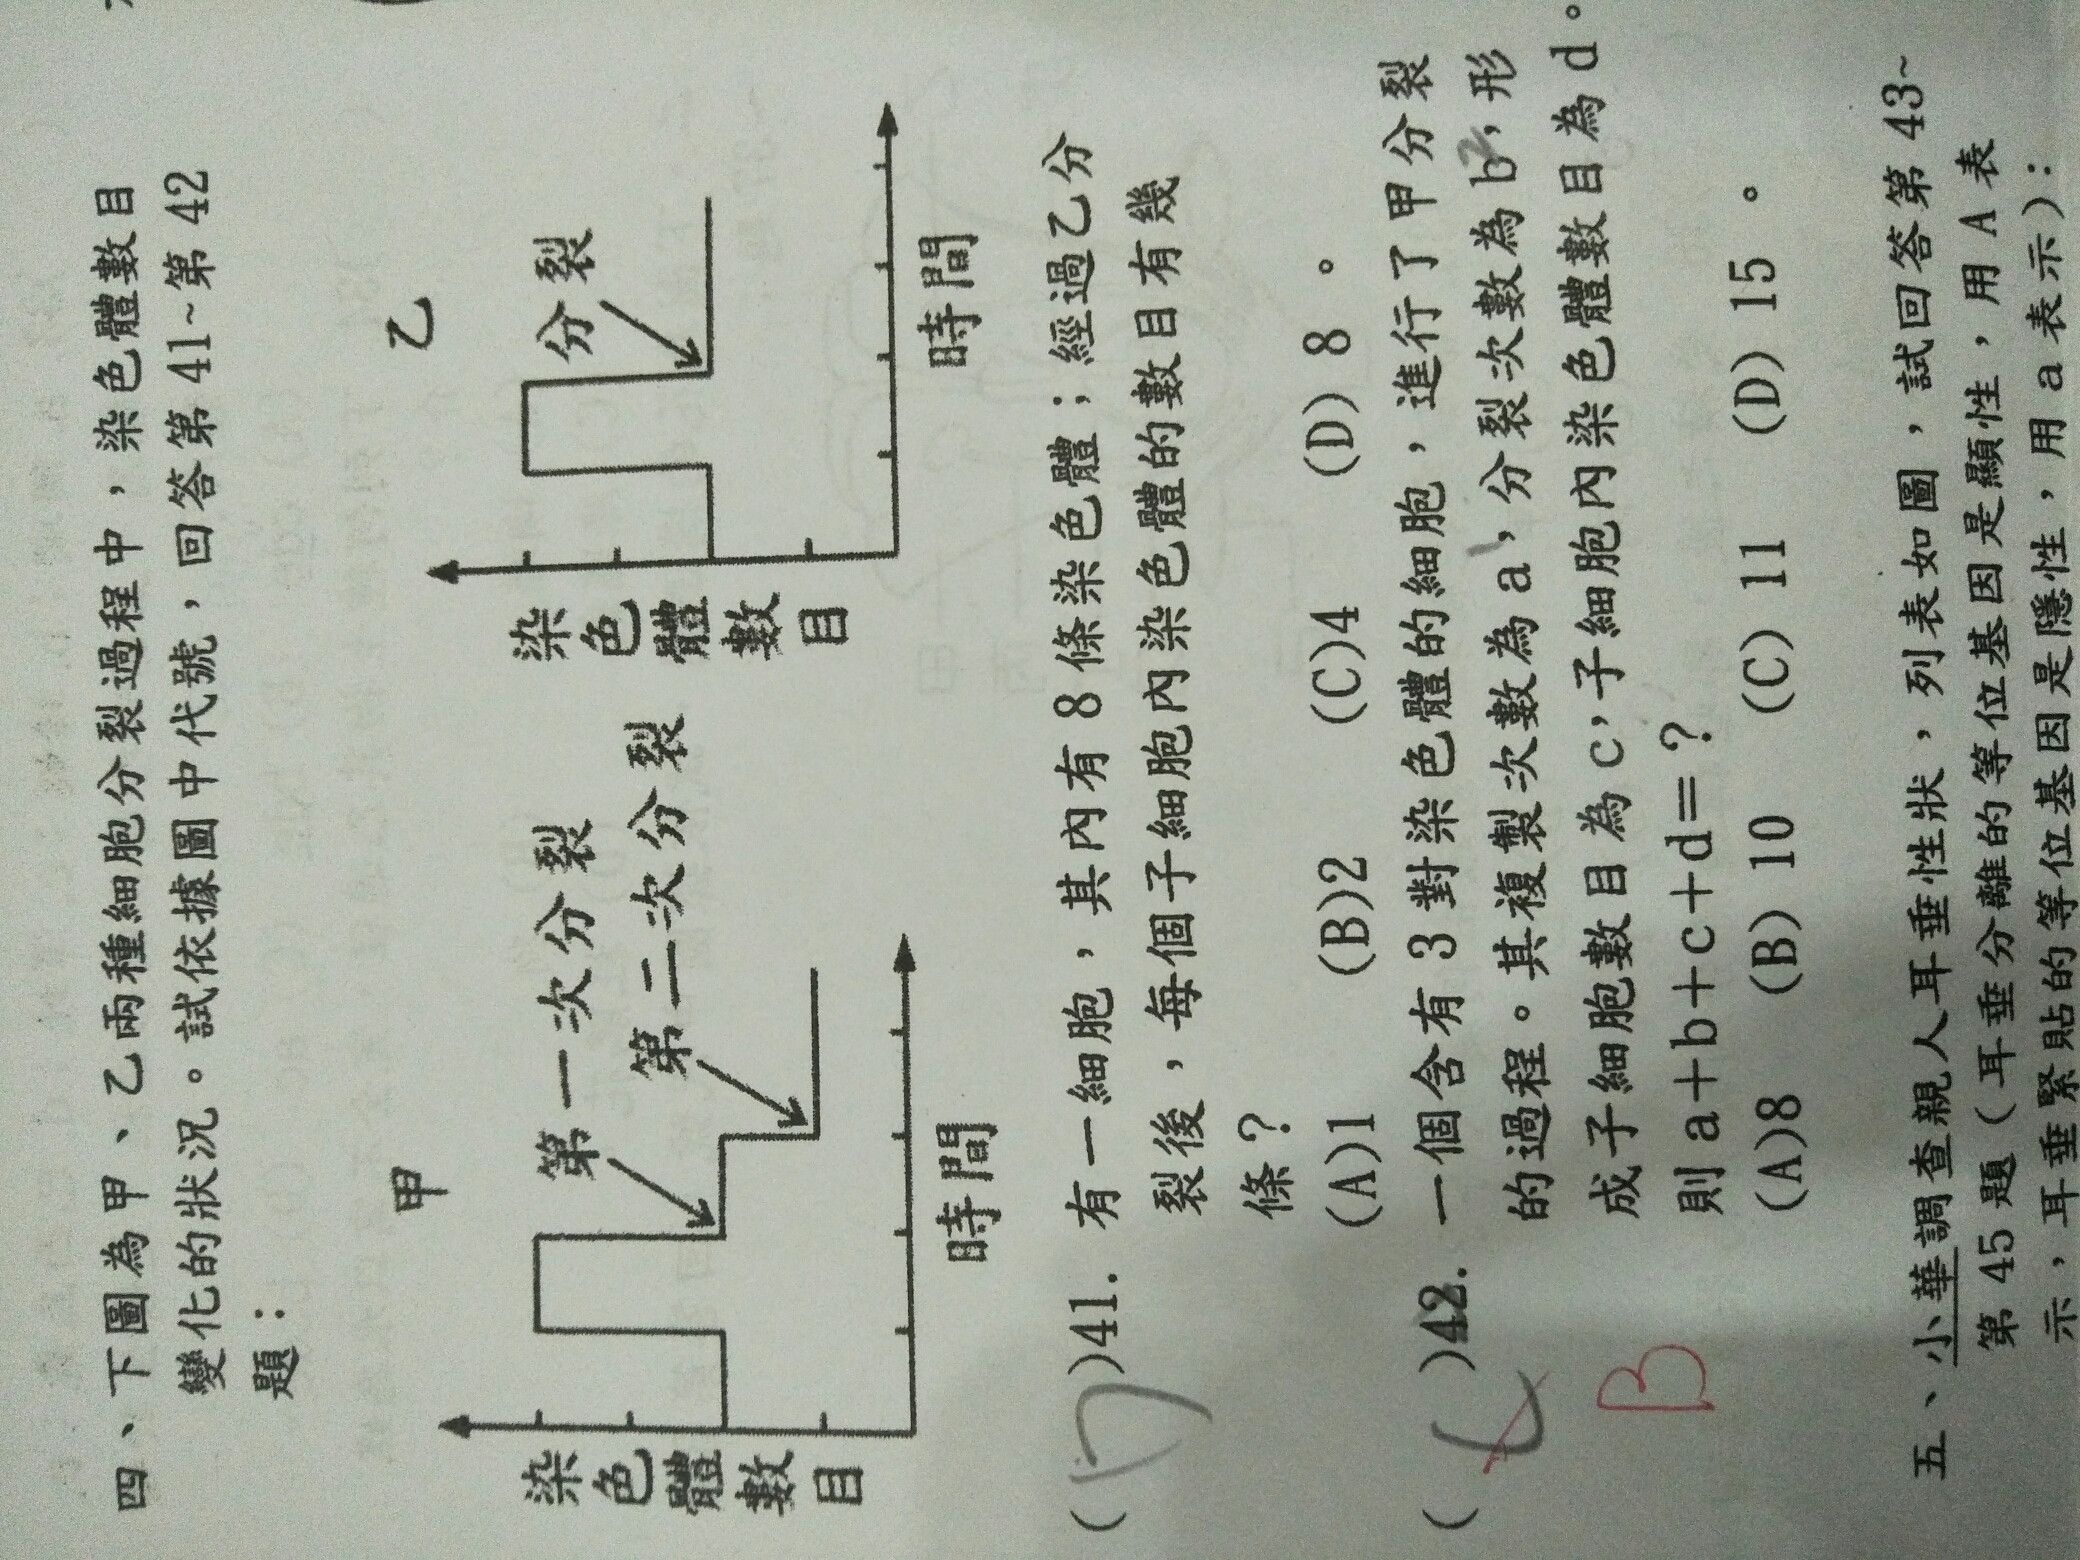 四、下圖為甲、乙兩種細胞分裂過程中，染色體數目
變化的狀況。試依據圖中代號，回答第 41~第 42
題：
甲
染色體數目
第一次分裂
第二次分裂
時間
乙
染色體數目
分裂
時間
(D)41. 有一細胞，其內有 8 條染色體；經過乙分
裂後，每個子細胞內染色體的數目有幾
條？
(A)1 (B)2 (C)4 (D) 8 。
( )42. 一個含有 3 對染色體的細胞，進行了甲分裂
B
的過程。其複製次數為 a，分裂次數為 b，形
成子細胞數目為 c，子細胞內染色體數目為 d。
則 a＋b＋c＋d＝？
(A)8 (B) 10 (C) 11 (D) 15 。
五、小華調查親人耳垂性狀，列表如圖，試回答第 43~
第 45 題（耳垂分離的等位基因是顯性，用 A 表
示，耳垂緊貼的等位基因是隱性，用 a 表示）：